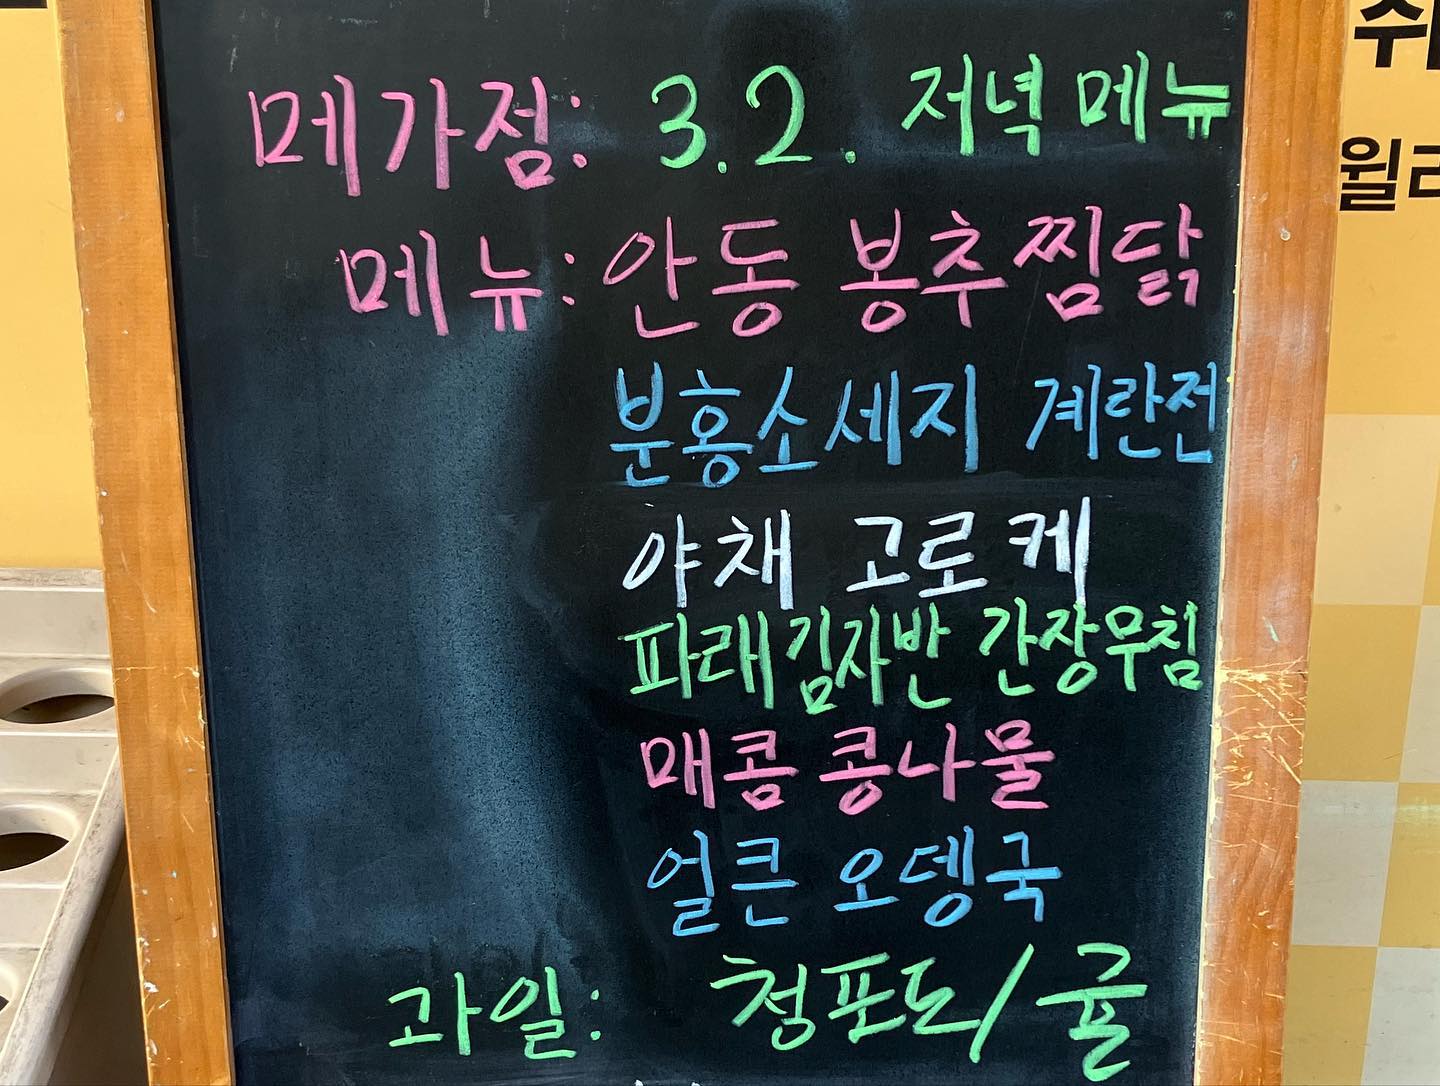 메가점: 3.2. 저녁 메뉴
메뉴: 안동 봉추찜닭
분홍소세지 계란전
야채 고로케
파래김자반 간장무침
매콤 콩나물
얼큰 오뎅국
과일: 청포도/귤
쉬
윌리